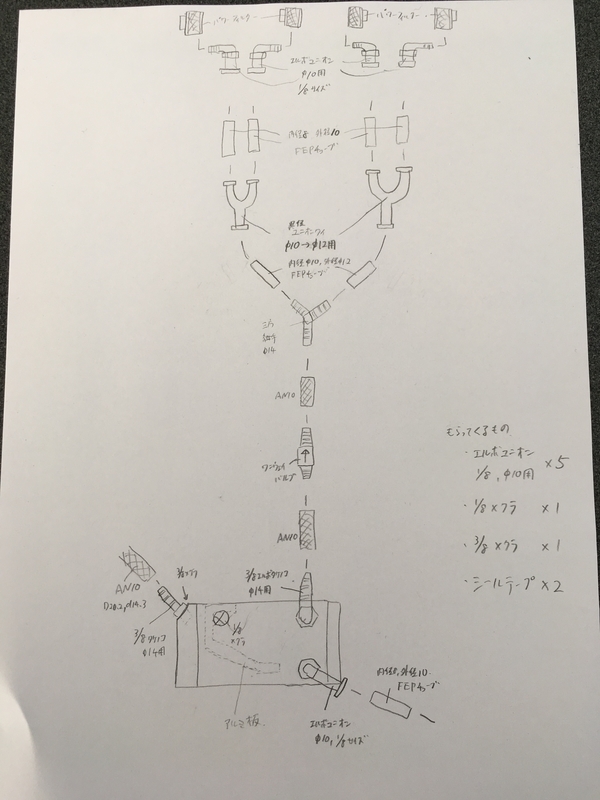 パワーチェック
パワーチェック
エルボユニオン
φ10用
1/8サイズ
内径8, 外径10
FEPチューブ
異径
ユニオンワイ
φ10→φ12用
内径φ10, 外径φ12
FEPチューブ
三方
継手
φ14
AN10
ワンウェイ
バルブ
AN10
もらってくるもの
・エルボユニオン
1/8, φ10用 ×5
・1/8メクラ ×1
・3/8メクラ ×1
・シールテープ×2
AN10
D20.2, d14.3
3/8エルボタケノコ
φ14用
3/8タケノコ
φ14用
1/8
メクラ
アルミ板
内径8, 外径10
FEPチューブ
エルボユニオン
φ10, 1/8サイズ